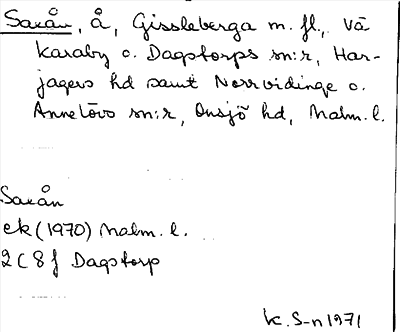 Saxån, å, Gissleberga m. fl., Vä
Karaby o. Dagstorps sn:r, Har-
jagers hd samt Norrvidinge o.
Annelövs sn:r, Onsjö hd, Malm. l.
Saxån
ek (1970) Malm. l.
2C8f Dagstorp
K. S-n 1971